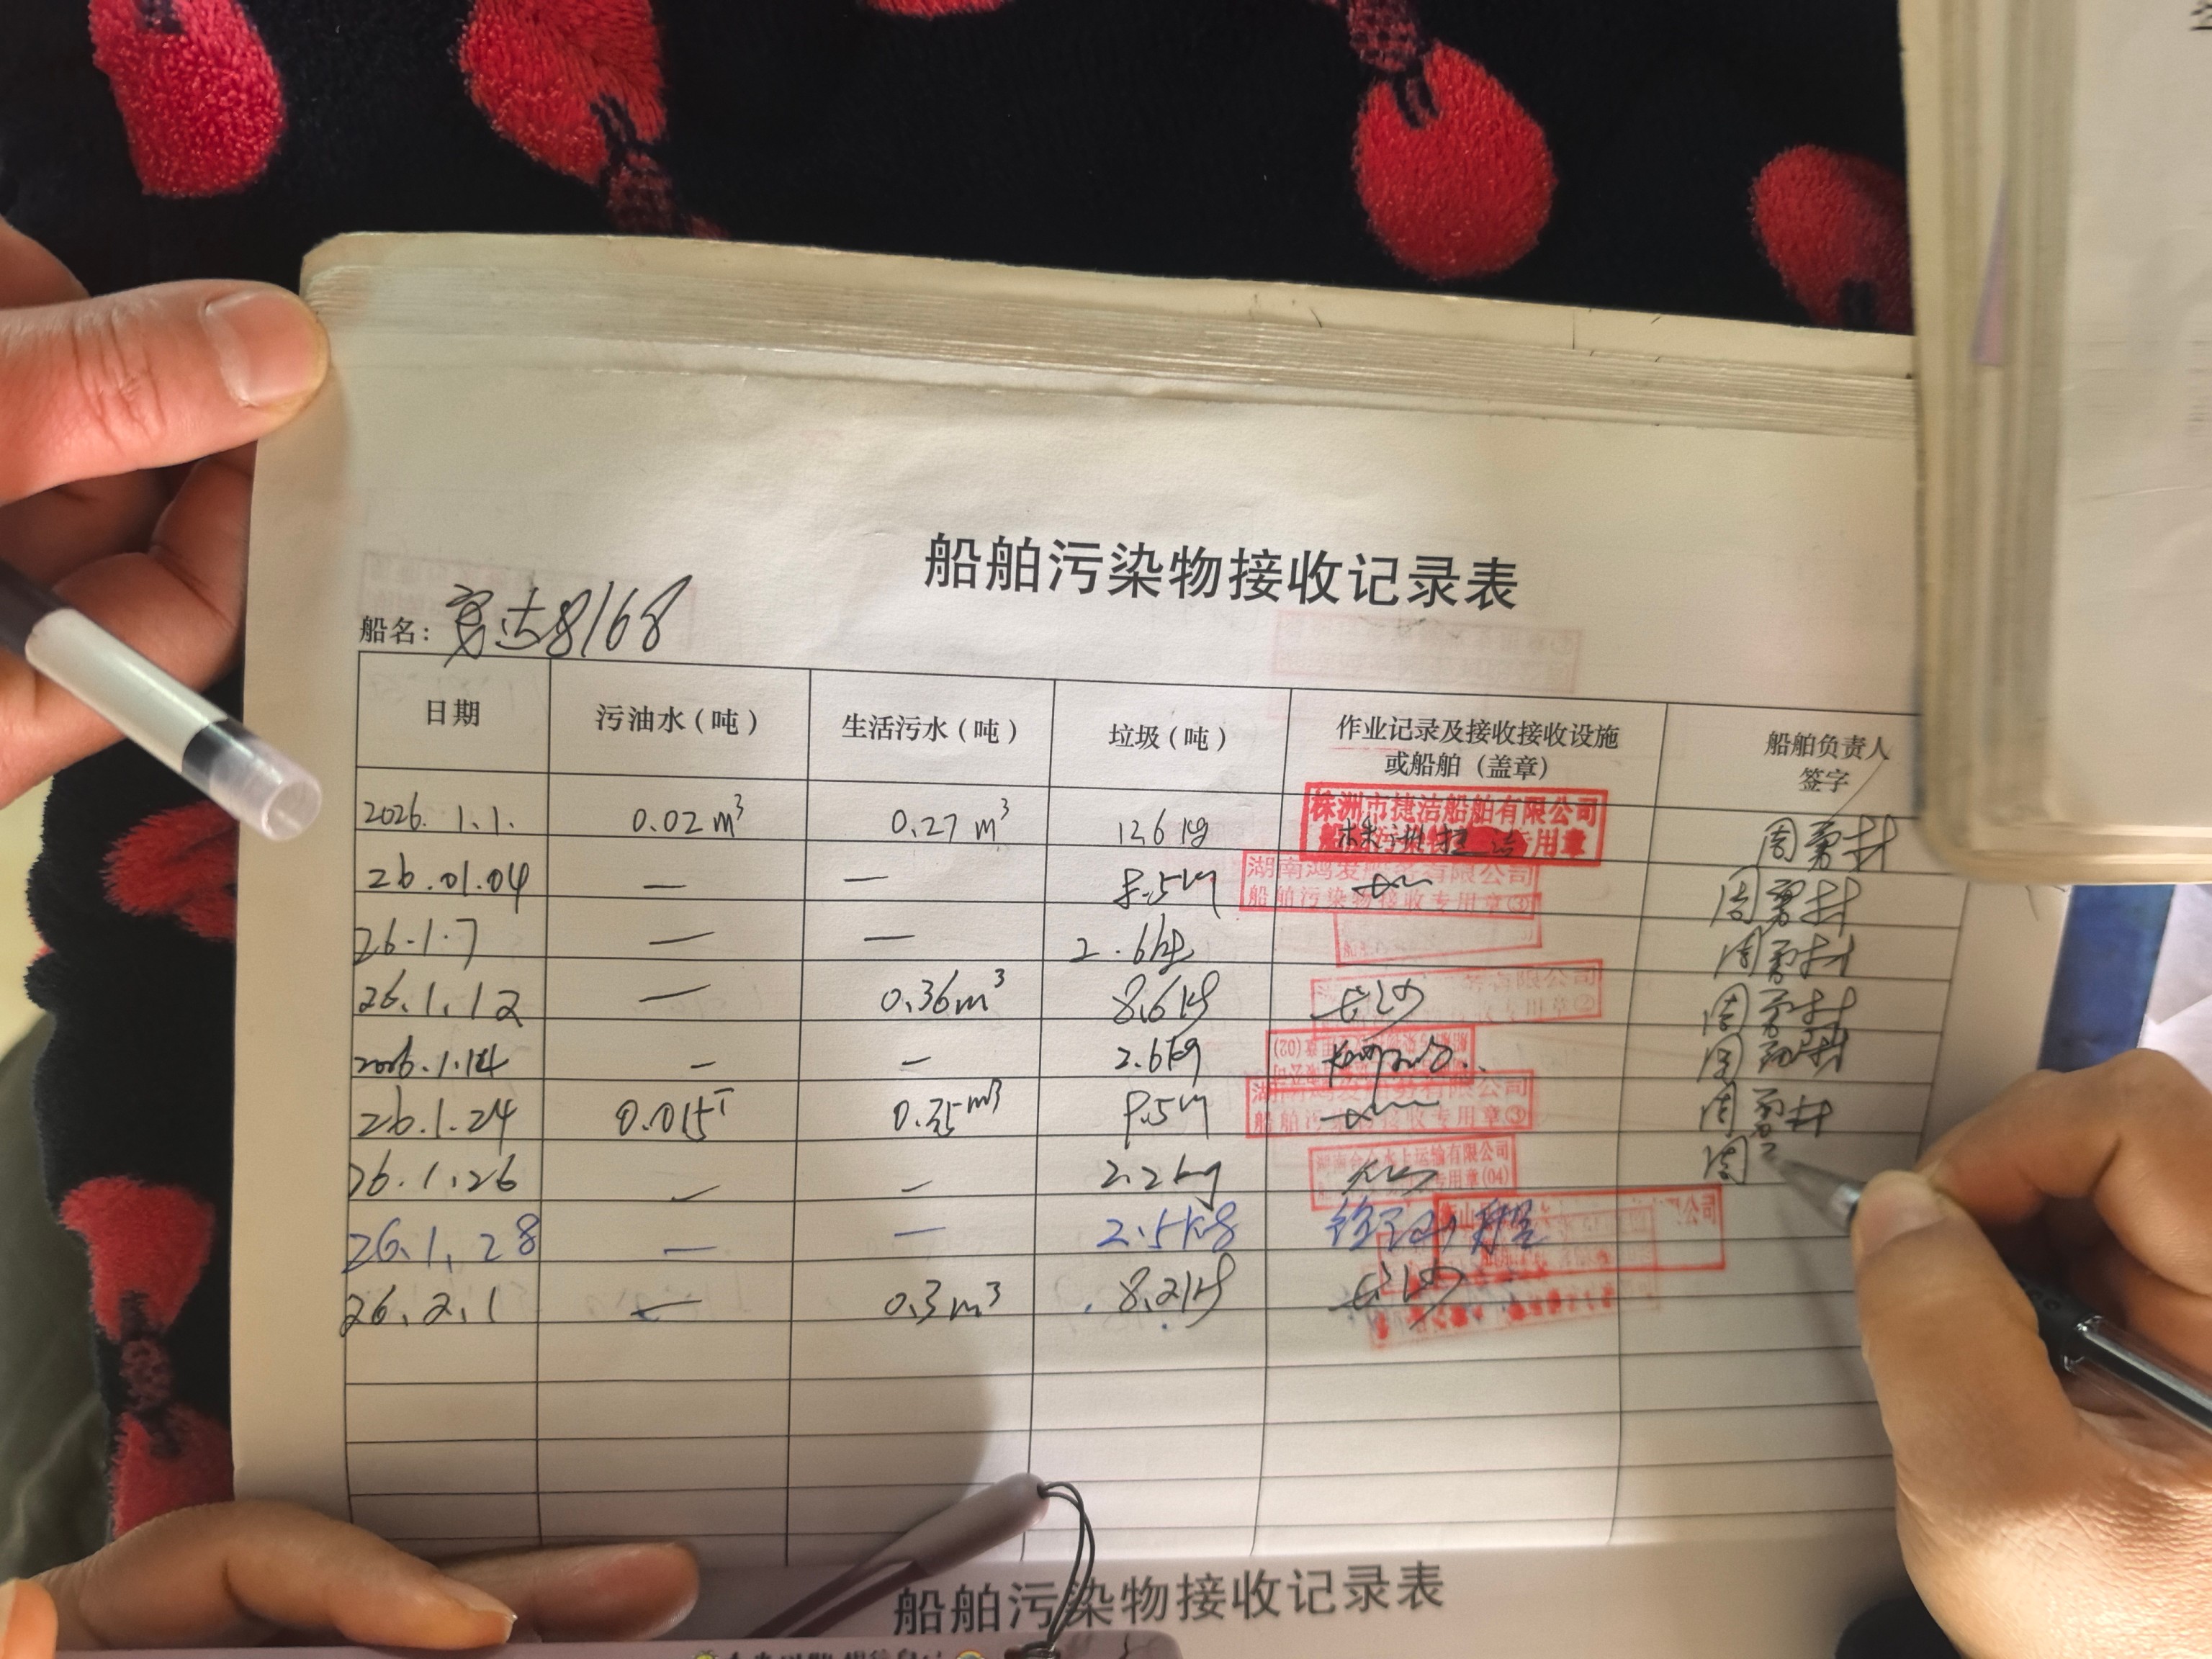 船舶污染物接收记录表
船名: 达8168
日期 污油水(吨) 生活污水(吨) 垃圾(吨) 作业记录及接收接收设施或船舶(盖章) 船舶负责人签字
2026.1.1. 0.02m³ 0.27m³ 12.6kg 株洲市捷洁船舶有限公司 专用章 周勇村
26.01.04 — — 8.5kg 湖南鸿爱船务有限公司 船舶污染物接收专用章(3) 周勇村
26.1.7 — — 2.6kg 周勇村
26.1.12 — 0.36m³ 8.6kg 长沙 有限公司 周勇村
2026.1.14 — — 2.6kg (02) 周勇村
26.1.24 0.015T 0.35m³ 9.5kg 湖南鸿爱船务有限公司 船舶污染物接收专用章(3) 周勇村
26.1.26 — — 2.2kg 水上运输有限公司 专用章(04) 周
26.1.28 — — 2.5kg 公司
26.2.1 — 0.3m³ 8.2kg 长沙
船舶污染物接收记录表